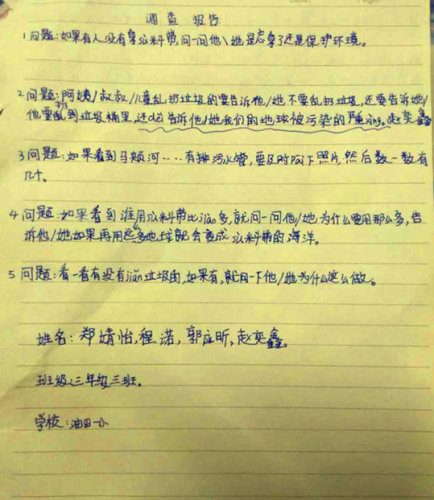 调查 报告
1 问题:如果有人没有拿水料带,问一问他\她是忘拿了还是保护环境。
2 问题:阿姨/叔叔/儿童乱扔垃圾的要告诉他/她不要乱扔垃圾,还要告诉她/
他要扔到垃圾桶里,还要告诉他/她我们的地球被污染的严重。赵奕鑫
3 问题:如果看到马颊河....有排污水管,要及时拍下照片,然后数一数有
几个。
4 问题:如果看到谁用水料带比jiao多,就问一问他/她为什么要用那么多,告
诉他/她如果再用这多地球就会变成水料带的海洋。
5 问题:看一看有没有jian垃圾的,如果有,就问一下他/她为什么这么做。
姓名:郑婧怡,程诺,郭应昕,赵奕鑫。
班级:三年级三班。
学校:油田一小